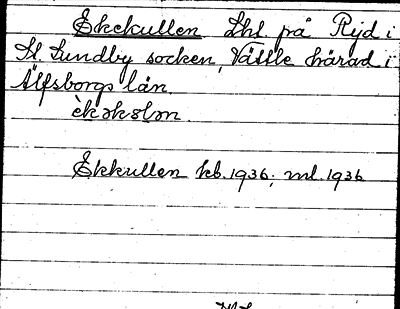 Ekekullen Lht. på Ryd i
St. Lundby socken, Vättle härad i
Älfsborgs län.
èkəkɵlən.
Ekkullen kb. 1936; ml. 1936